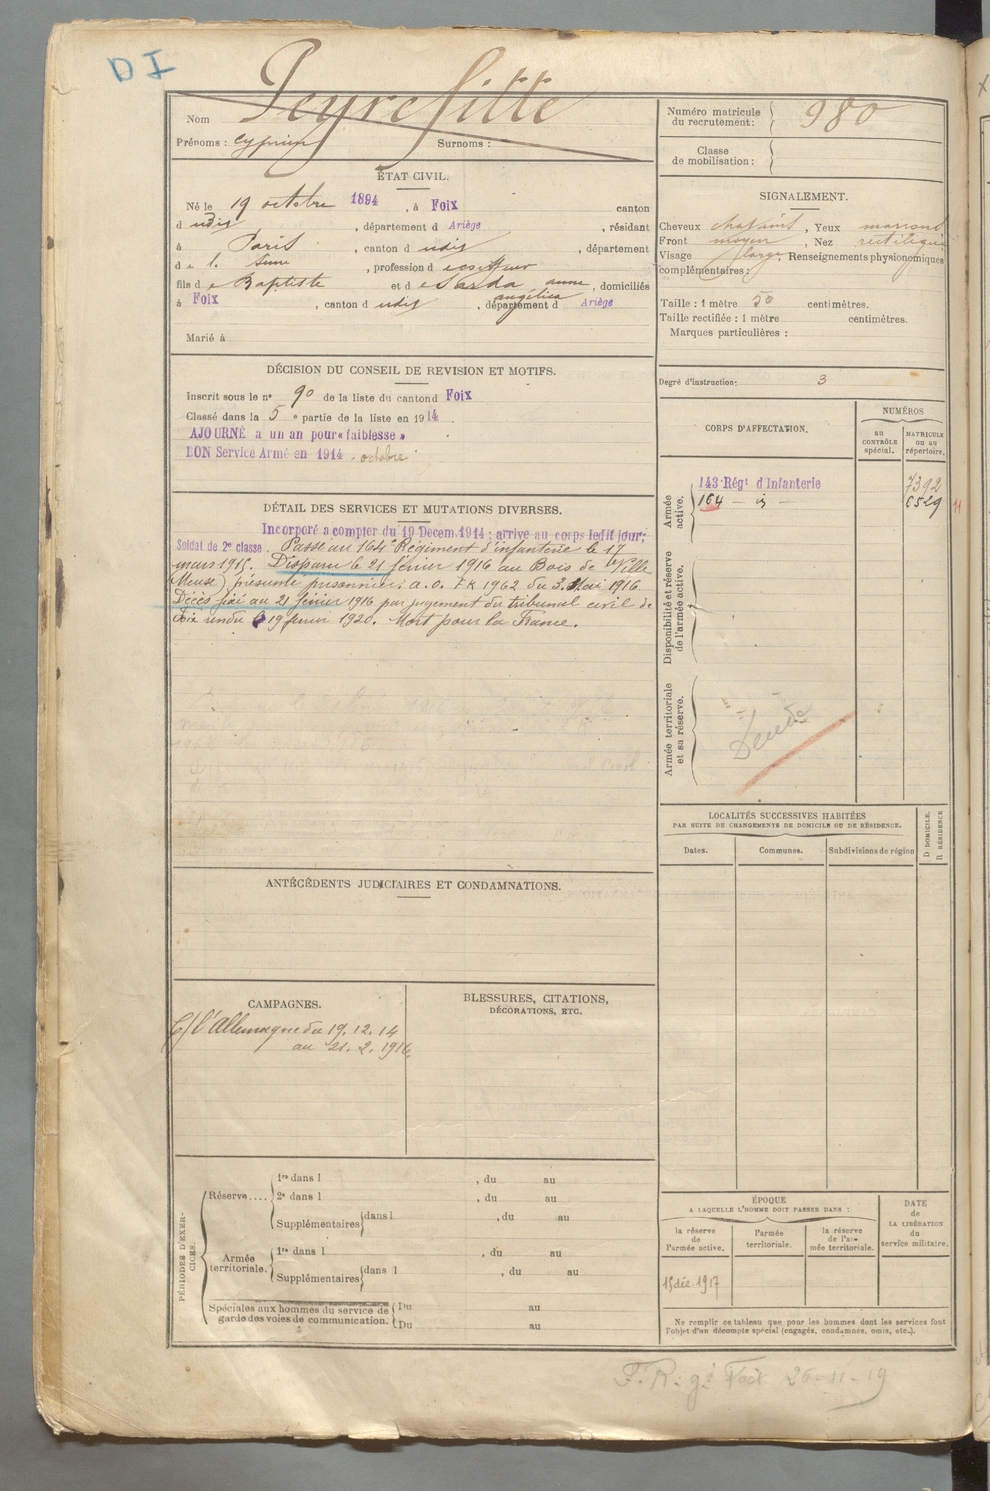 DI
Nom Peyrefitte
Prénoms : Cyprien Surnoms :
Numéro matricule du recrutement : 980
Classe de mobilisation :
ÉTAT CIVIL.
Né le 19 octobre 1894, à Foix canton
d udis, département d Ariège, résidant
à Paris, canton d udis, département
d e la Seine, profession d
fils d e Baptiste et d e Sarda anne angélica, domiciliés
à Foix, canton d udis, département d Ariège
Marié à
SIGNALEMENT.
Cheveux chatains, Yeux marrons
Front moyen, Nez rectiligne
Visage large, Renseignements physionomiques
complémentaires :
Taille : 1 mètre 50 centimètres.
Taille rectifiée : 1 mètre centimètres.
Marques particulières :
Degré d'instruction: 3
DÉCISION DU CONSEIL DE REVISION ET MOTIFS.
Inscrit sous le nº 90 de la liste du canton d Foix
Classé dans la 5e partie de la liste en 1914.
AJOURNÉ a un an pour « faiblesse »
BON Service Armé en 1914 . octobre
DÉTAIL DES SERVICES ET MUTATIONS DIVERSES.
Incorporé a compter du 19 Decem. 1914 ; arrive au corps ledit jour;
Soldat de 2e classe. Passé au 164e Régiment d'infanterie le 17
mars 1915. Disparu le 21 février 1916 au Bois de Ville
(Meuse) présumé prisonnier. a.o. FK 1962 du 3. Mai 1916.
Décès fixé au 21 février 1916 par jugement du tribunal civil de
Foix rendu le 19 février 1920. Mort pour la France.
CORPS D'AFFECTATION.
NUMÉROS
AU CONTRÔLE spécial.
MATRICULE ou au répertoire.
Armée active.
143 Régt d'Infanterie 7392
164 - is - 6529 11
Disponibilité et réserve de l'armée active.
Armée territoriale et sa réserve.
LOCALITÉS SUCCESSIVES HABITÉES
PAR SUITE DE CHANGEMENTS DE DOMICILE OU DE RÉSIDENCE.
Dates. Communes. Subdivisions de région
D DOMICILE.
R RÉSIDENCE
ANTÉCÉDENTS JUDICIAIRES ET CONDAMNATIONS.
CAMPAGNES.
C/ l'Allemagne du 19.12.14
au 21.2.1916
BLESSURES, CITATIONS,
DÉCORATIONS, ETC.
PÉRIODES D'EXERCICES.
Réserve....
1re dans l , du au
2e dans l , du au
Supplémentaires dans l , du au
Armée territoriale.
1re dans l , du au
Supplémentaires dans l , du au
Spéciales aux hommes du service de garde des voies de communication.
Du au
Du au
ÉPOQUE
A LAQUELLE L'HOMME DOIT PASSER DANS :
la réserve de l'armée active.
l'armée territoriale.
la réserve de l'armée territoriale.
DATE de LA LIBÉRATION du service militaire.
15 déc. 1917
Ne remplir ce tableau que pour les hommes dont les services font
l'objet d'un décompte spécial (engagés, condamnés, omis, etc.).
F. R. g. Foix 26-11-19